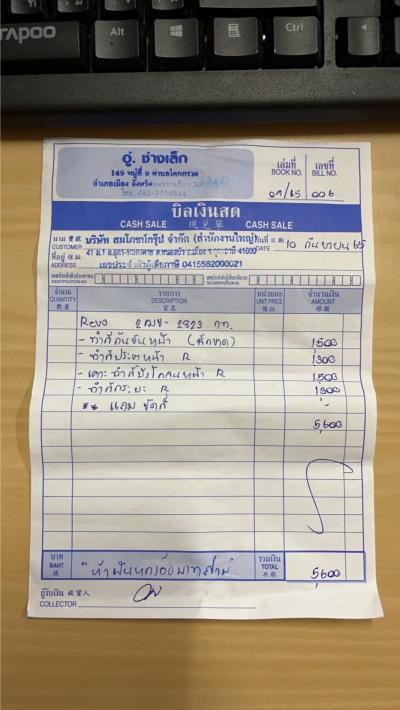 RAPOO
Alt
Ctrl
อู่ ช่างเล็ก
149 หมู่ที่ 9 ตำบลโคกกรวด
อำเภอเมือง จังหวัดนครราชสีมา
โทร.
เล่มที่ เลขที่
BOOK NO. BILL NO.
09/65 006
บิลเงินสด
CASH SALE 現兌單 CASH SALE
นาม
CUSTOMER บริษัท สมโภชน์กรุ๊ป จำกัด (สำนักงานใหญ่) วันที่ DATE 10 กันยายน 65
ที่อยู่
ADDRESS
เลขประจำตัวผู้เสียภาษี 0415562000021
จำนวน รายการ หน่วยละ จำนวนเงิน
QUANTITY DESCRIPTION UNIT PRICE AMOUNT
Revo 2ฒฆ-2823 กท.
- ทำสีกันชนหน้า 1,500
- ทำสีประตูหน้า R 1,300
- เคาะ ทำสีบังโคลนหน้า R 1,500
- ทำสีกระบะ R 1,300
** แถม ขัดสี -
5,600
บาท รวมเงิน
BAHT "ห้าพันหกร้อยบาทถ้วน" TOTAL 5,600
ผู้รับเงิน 收貨人
COLLECTOR